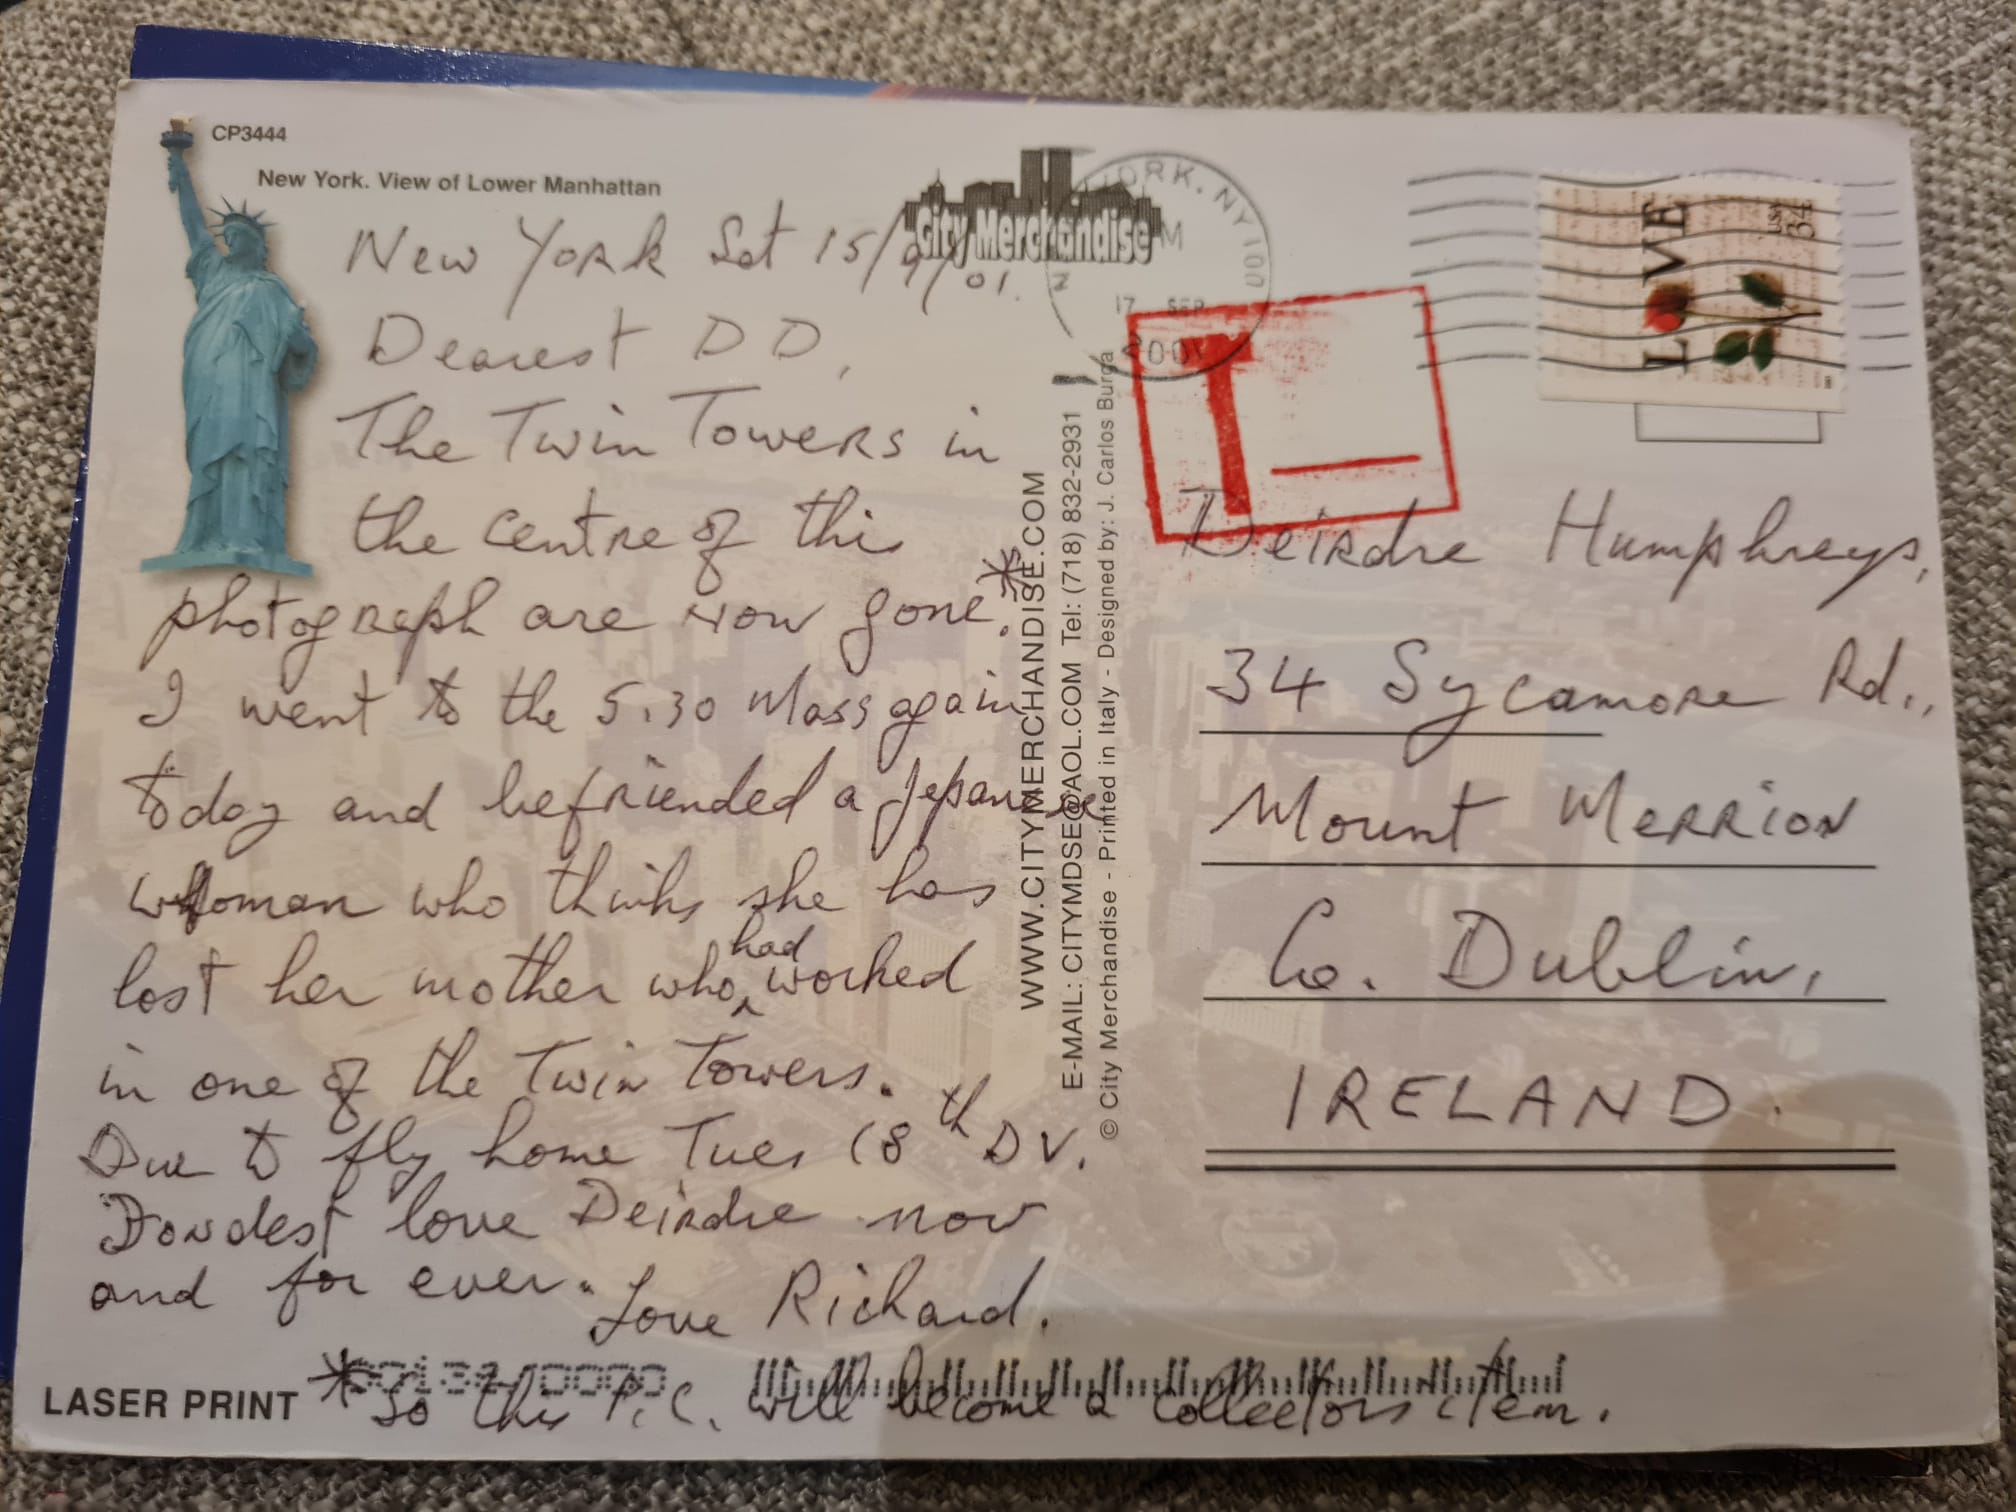 CP3444
New York. View of Lower Manhattan
City Merchandise
New York Sat 15/9/01.
Dearest DD,
The Twin Towers in
the centre of this
photograph are now gone.*
I went to the 5.30 Mass again
today and befriended a Japanese
woman who thinks she has
lost her mother who had worked
in one of the Twin Towers.
Due to fly home Tues 18th DV.
Fondest love Deirdre now
and for ever. Love Richard.
*So this P.C. will become a collectors item.
LASER PRINT
WWW.CITYMERCHANDISE.COM
E-MAIL: CITYMDSE@AOL.COM Tel: (718) 832-2931
© City Merchandise - Printed in Italy - Designed by: J. Carlos Burga
ORK, NY 100
17 SEP
2001
T
LOVE
USA
34
Deirdre Humphreys,
34 Sycamore Rd.,
Mount Merrion
Co. Dublin,
IRELAND.